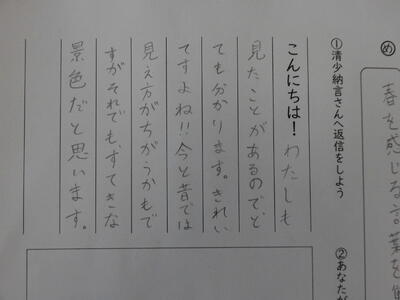 め
春を感じる言葉を
①清少納言さんへ返信をしよう
こんにちは！わたしも
見たことがあるのでと
ても分かります。きれい
ですよね!!今と昔では
見え方がちがうかもで
すがそれでも、すてきな
景色だと思います。
②あなたが